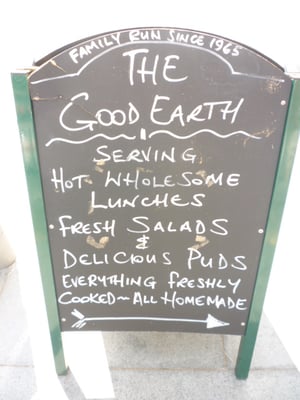 FAMILY RUN SINCE 1965
THE
GOOD EARTH
SERVING
HOT WHOLESOME
LUNCHES
FRESH SALADS
&
DELICIOUS PUDS
EVERYTHING FRESHLY
COOKED~ALL HOMEMADE